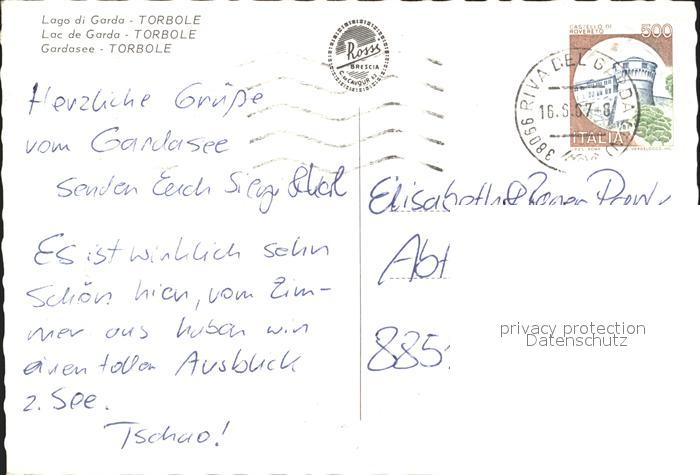 Lago di Garda - TORBOLE
Lac de Garda - TORBOLE
Gardasee - TORBOLE
Rossi
BRESCIA
C. CAVOUR 52
CASTELLO DI
ROVERETO
500
ITALIA
38066 RIVA DEL GARDA
16.6.87-8
Herzliche Grüße
vom Gardasee
senden Euch
Es ist wirklich sehr
schön hier, vom Zim-
mer aus haben wir
einen tollen Ausblick
z. See.
Tschao!
Elisabeth &
Abt
885
privacy protection
Datenschutz